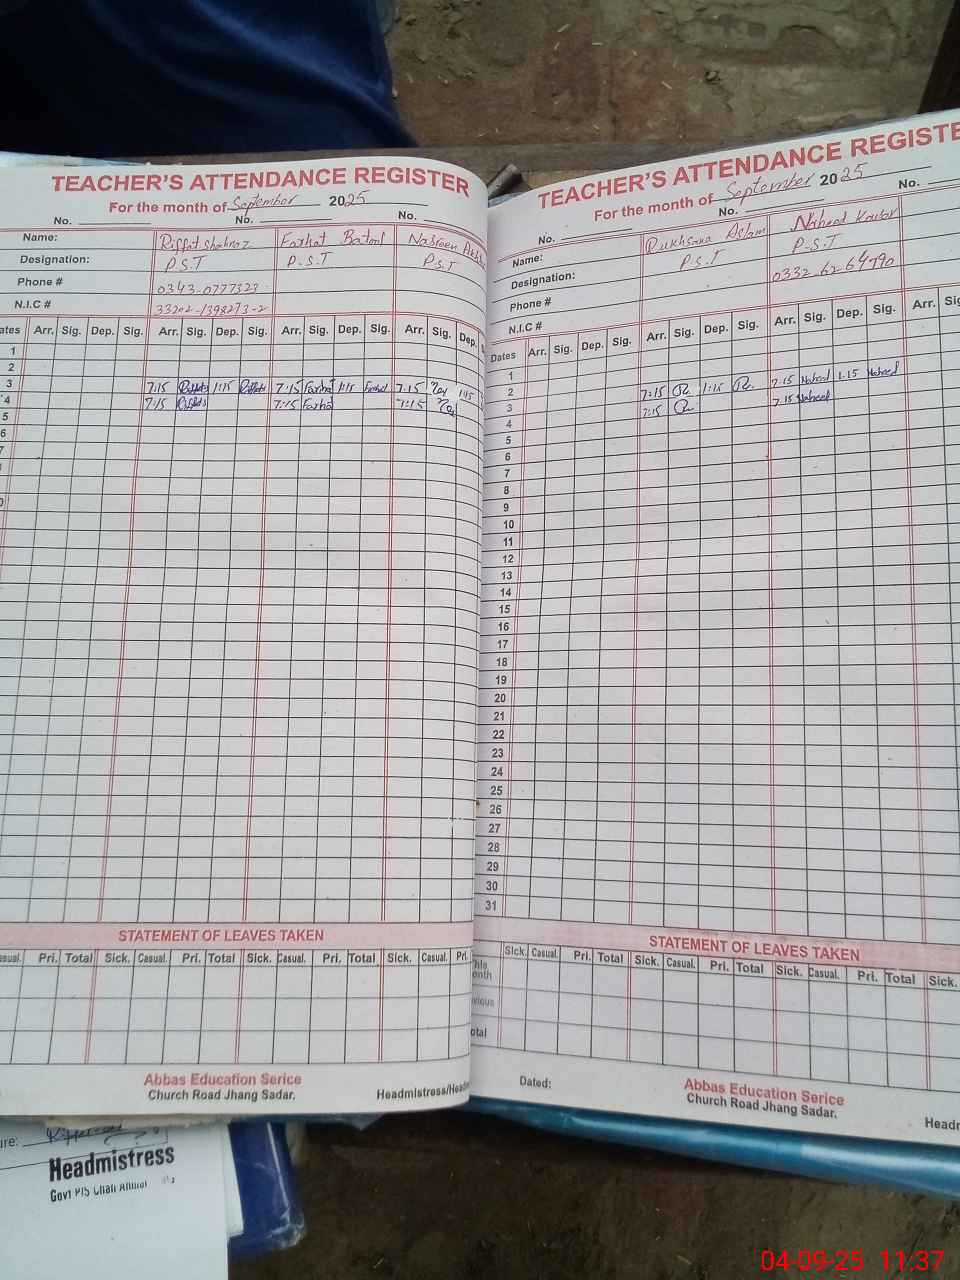 TEACHER'S ATTENDANCE REGISTER
For the month of September 2025
No. No. No.
Name: Riffat Shahnaz Farhat Batool Nasreen
Designation: P.S.T P.S.T P.S.T
Phone # 0343-0777323
N.I.C # 33202-1398273-2
Arr. Sig. Dep. Sig. Arr. Sig. Dep. Sig. Arr. Sig. Dep. Sig. Arr. Sig. Dep.
1
2
3 7:15 Riffat 1:15 Riffat 7:15 Farhat 1:15 Farhat 7:15 1:15
4 7:15 Riffat 7:15 Farhat 7:15
5
6
7
STATEMENT OF LEAVES TAKEN
Pri. Total Sick. Casual. Pri. Total Sick. Casual. Pri. Total Sick. Casual. Pri.
Abbas Education Serice
Church Road Jhang Sadar.
TEACHER'S ATTENDANCE
For the month of September 2025
No. No. No.
Name: Rukhsana Aslam Naheed Kausar
Designation: P.S.T P.S.T
Phone # 0332-6264790
N.I.C #
Dates Arr. Sig. Dep. Sig. Arr. Sig. Dep. Sig. Arr. Sig. Dep. Sig. Arr. Sig.
1
2 7:15 1:15 7:15 Naheed 1:15 Naheed
3 7:15 7:15 Naheed
4
5
6
7
8
9
10
11
12
13
14
15
16
17
18
19
20
21
22
23
24
25
26
27
28
29
30
31
STATEMENT OF LEAVES TAKEN
Sick. Casual. Pri. Total Sick. Casual. Pri. Total Sick. Casual. Pri. Total Sick.
Dated:
Abbas Education Serice
Church Road Jhang Sadar.
Headmistress
Govt P/S
04-09-25 11:37